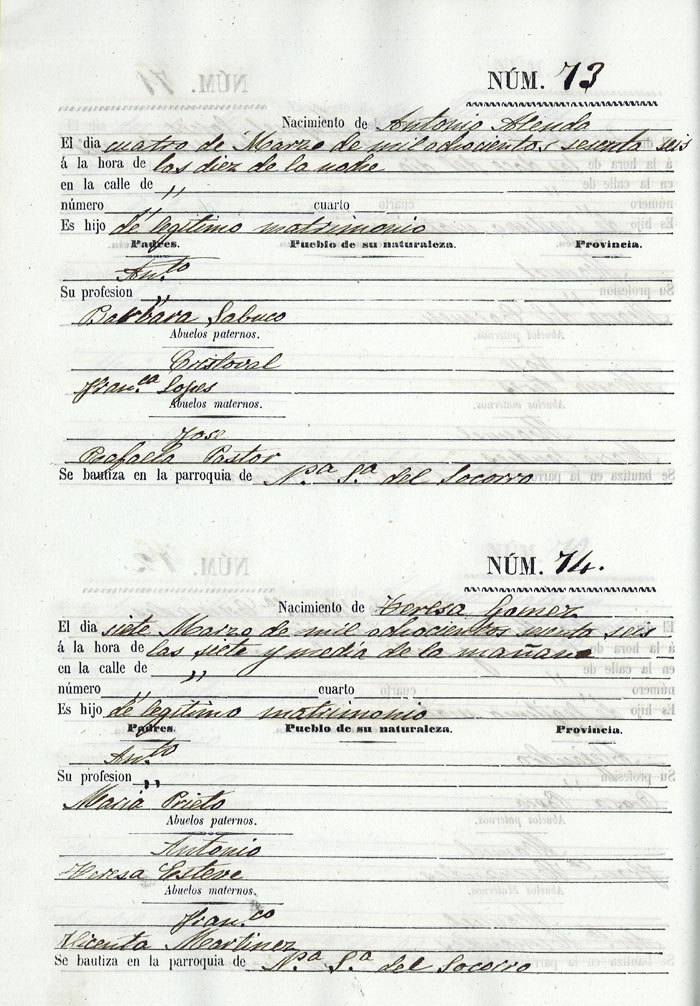 NÚM. 73
Nacimiento de Antonio Alenda
El dia cuatro de Marzo de mil ochocientos sesenta seis
á la hora de las diez de la noche
en la calle de "
número " cuarto
Es hijo de legitimo matrimonio
Padres. Pueblo de su naturaleza. Provincia.
Ant.to
Su profesion "
Barbara Sabuco
Abuelos paternos.
Cristoval
Fran.ca Lopes
Abuelos maternos.
Jose
Rafaela Pastor
Se bautiza en la parroquia de N.ª S.ª del Socorro
NÚM. 74.
Nacimiento de Teresa Gomez
El dia siete Marzo de mil ochocientos sesenta seis
á la hora de las siete y media de la mañana
en la calle de "
número " cuarto
Es hijo de legitimo matrimonio
Padres. Pueblo de su naturaleza. Provincia.
Ant.to
Su profesion "
Maria Prieto
Abuelos paternos.
Antonio
Teresa Esteve
Abuelos maternos.
Fran.co
Vicenta Martinez
Se bautiza en la parroquia de N.ª S.ª del Socorro